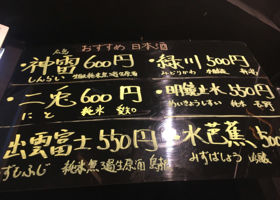 おすすめ 日本酒
広島
・神雷 600円
しんらい 純米無ろ過生原酒
・緑川 500円
みどりかわ 本醸造 新潟
・二兎 600円
にと 純米 愛知
・明鏡止水 550円
めいきょうしすい 純米 長野
出雲富士 550円
ずもふじ 純米無ろ過生原酒 島根
水芭蕉 500円
みずばしょう 吟醸